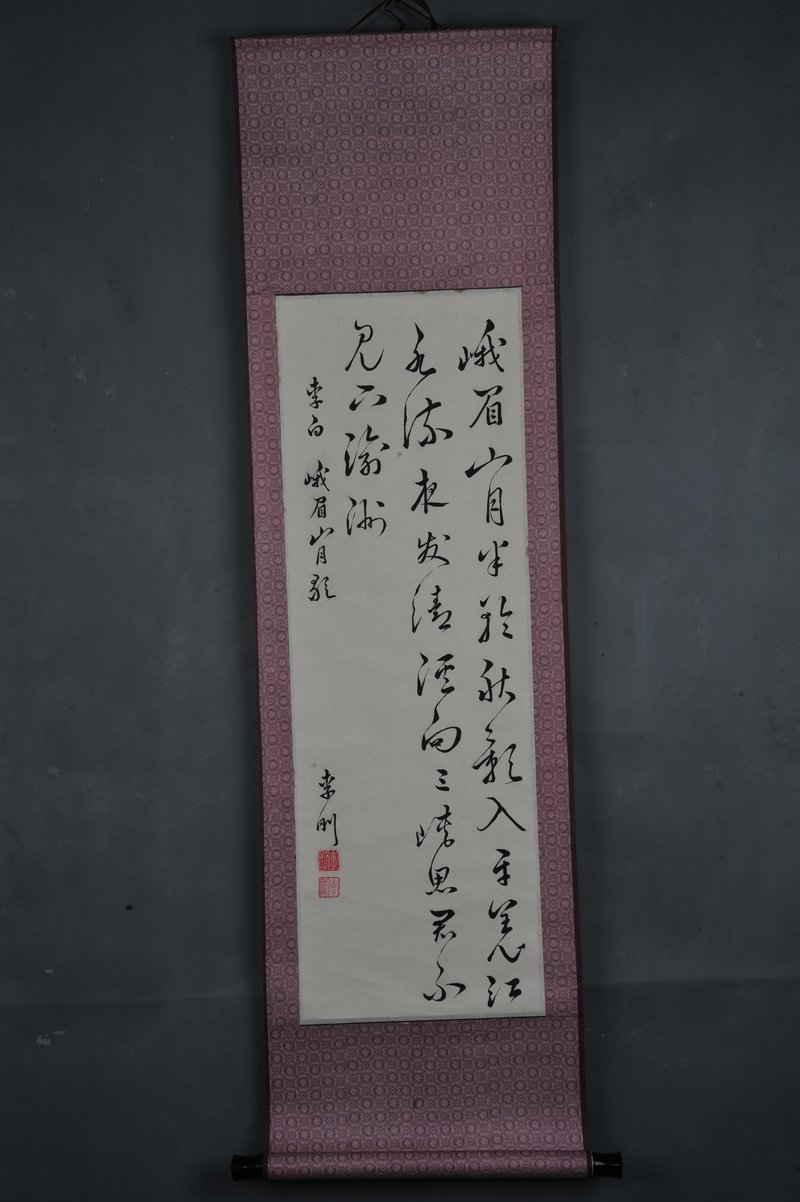 峨眉山月半轮秋影入平羌江
水流夜发清溪向三峡思君不
见下渝州
李白 峨眉山月歌
李刚